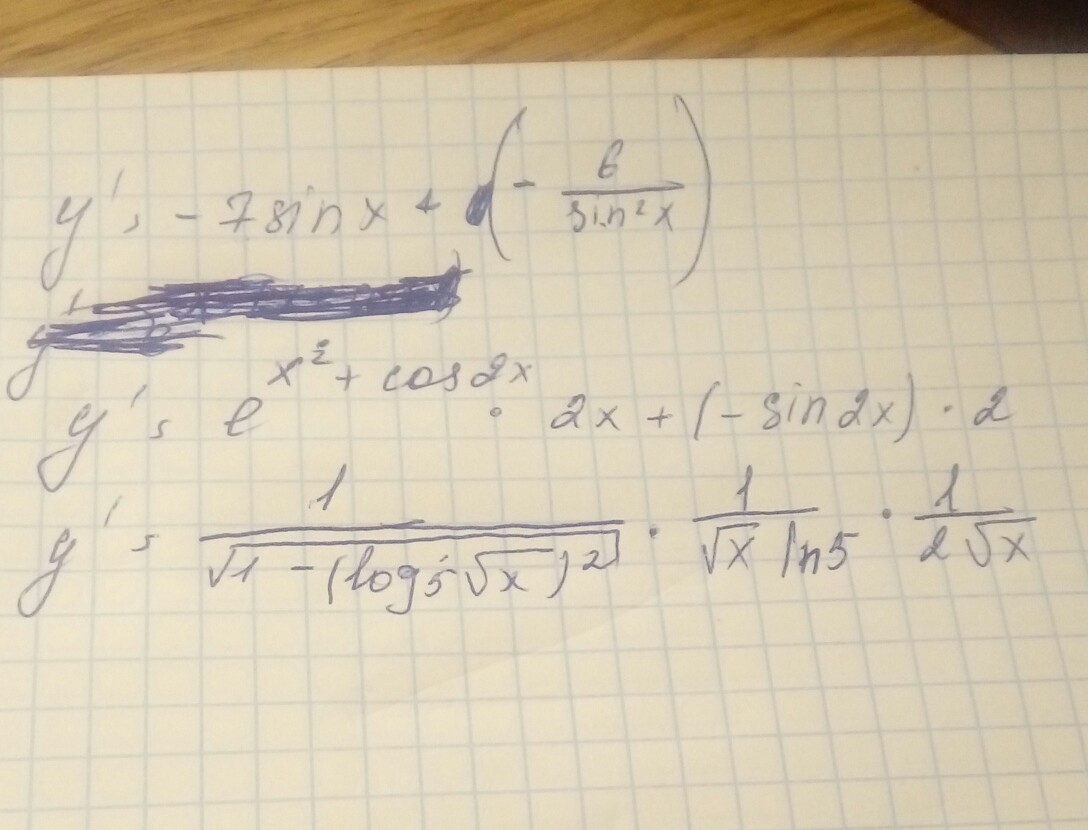 y' = -7 sin x + (- 6/sin²x)
y' = e^(x² + cos 2x) · 2x + (- sin 2x) · 2
y' = 1/√(1 - (log₅√x)²) · 1/(√x ln5) · 1/(2√x)